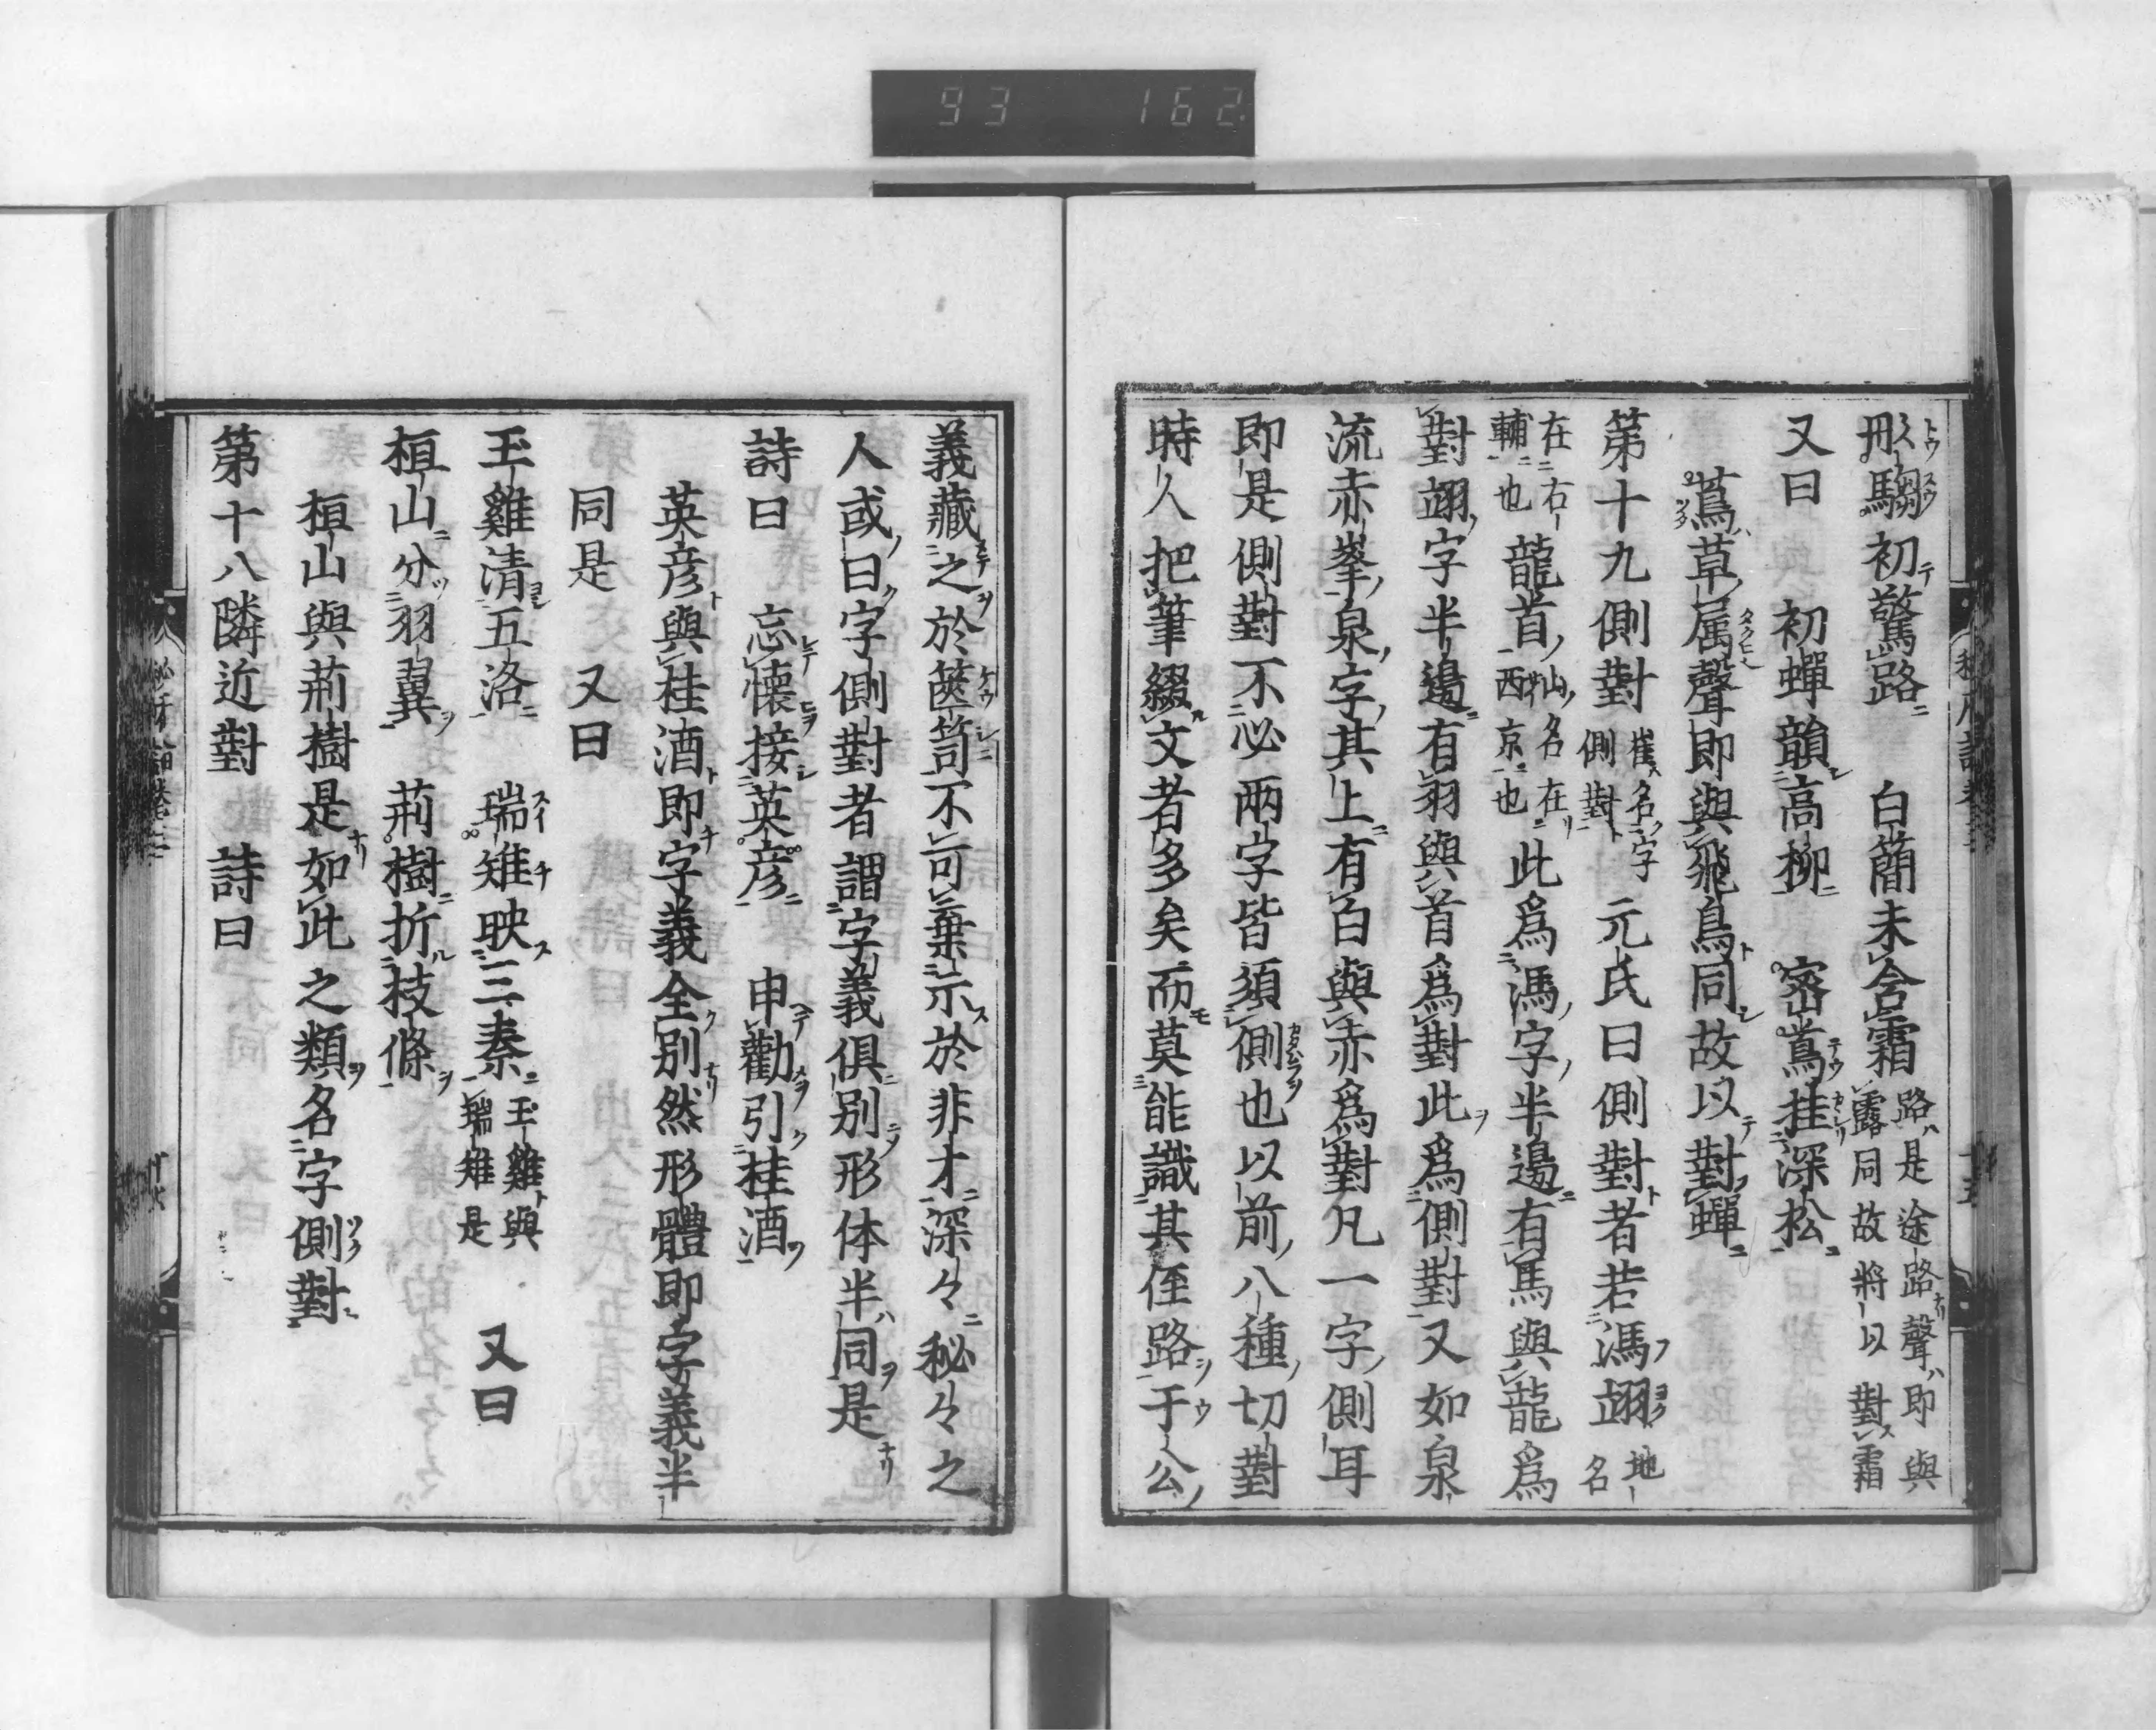 93 162
彤騶初驚路 白簡未含霜 路是途路聲即與露同故將以對霜
又曰 初蟬韻高柳 密蔦挂深松
蔦草属聲即與飛鳥同故以對蟬
第十九側對 崔名字側對 元氏曰側對者若馮翊 地名
在右輔也 龍首 山名在西京也 此爲馮字半邊有馬與龍爲
對翊字半邊有羽與首爲對此爲側對又如泉
流赤峯泉字其上有白與赤爲對凡一字側耳
即是側對不必兩字皆須側也以前八種切對
時人把筆綴文者多矣而莫能識其侄路于公
義藏之於篋笥不可棄示於非才深々秘々之
人或曰字側對者謂字義俱別形体半同是
詩曰 忘懷接英彦 申勸引桂酒
英彦與桂酒即字義全別然形體即字義半
同是 又曰
玉雞清五洛 瑞雉映三秦 玉雞與瑞雉是 又曰
桓山分羽翼 荊樹折枝條
桓山與荊樹是如此之類名字側對
第十八隣近對 詩曰